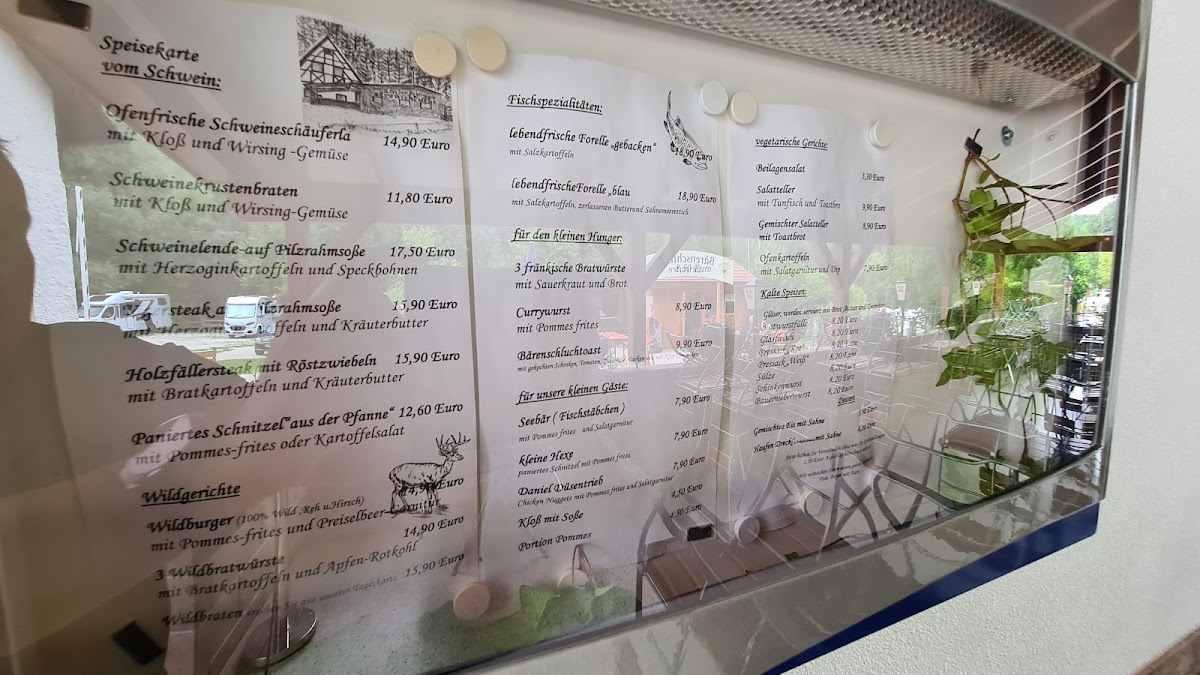 Speisekarte
vom Schwein:
Ofenfrische Schweineschäuferla
mit Kloß und Wirsing -Gemüse 14,90 Euro
Schweinekrustenbraten
mit Kloß und Wirsing-Gemüse 11,80 Euro
Schweinelende-auf Pilzrahmsoße 17,50 Euro
mit Herzoginkartoffeln und Speckbohnen
Pilzrahmsoße 15,90 Euro
und Kräuterbutter
Holzfällersteak mit Röstzwiebeln 15,90 Euro
mit Bratkartoffeln und Kräuterbutter
Paniertes Schnitzel"aus der Pfanne" 12,60 Euro
mit Pommes-frites oder Kartoffelsalat
Wildgerichte
Wildburger (100% Wild ,Reh u.Hirsch) 14,90 Euro
mit Pommes-frites und Preiselbeer-
14,90 Euro
3 Wildbratwürste
mit Bratkartoffeln und Apfen-Rotkohl
15,90 Euro
Wildbraten
Fischspezialitäten:
lebendfrische Forelle „gebacken"
mit Salzkartoffeln 18,90 Euro
lebendfrischeForelle „blau
mit Salzkartoffeln, zerlassenen Butterund Sahnemeerrettich 18,90 Euro
für den kleinen Hunger:
3 fränkische Bratwürste
mit Sauerkraut und Brot
8,90 Euro
Currywurst
mit Pommes frites
9,90 Euro
Bärenschluchtoast
mit gekochten Schinken, Tomaten,
für unsere kleinen Gäste:
7,90 Euro
Seebär ( Fischstäbchen )
mit Pommes frites und Salatgarnitur
7,90 Euro
kleine Hexe
paniertes Schnitzel mit Pommes frites
7,90 Euro
Daniel Düsentrieb
Chicken Nuggets mit Pommes frites und Salatgarnitur
4,50 Euro
Kloß mit Soße
4,50 Euro
Portion Pommes
vegetarische Gerichte:
Beilagensalat 3,30 Euro
Salatteller
mit Tunfisch und Toastbro 9,90 Euro
Gemischter Salatteller
mit Toastbrot 8,90 Euro
Ofenkartoffeln
mit Salatgarnitur und Dip 7,90 Euro
Kalte Speisen:
Gläser, werden serviert mit Brot
8,20 Euro
Glasfleisch 8,20 Euro
Pressack „Rot" 8,20 Euro
Pressack „Weiß" 8,20 Euro
Sülze 8,20 Euro
Schinkenwurst 8,20 Euro
Bauernleberwurst 8,20 Euro
Dessert
Gemischtes Eis mit Sahne
Haufen Dreck mit Sahne